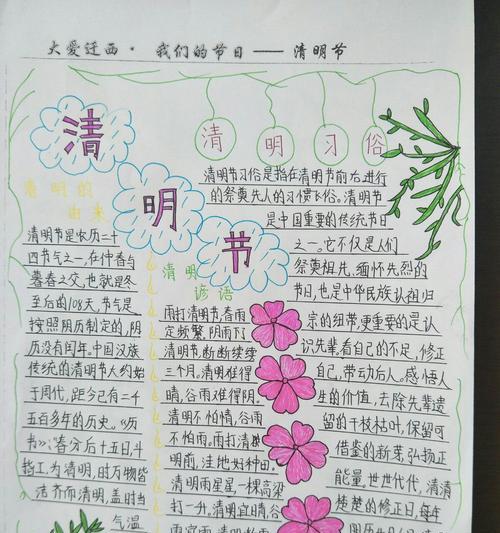 大爱迁西·我们的节日——清明节
清
明
节
清明习俗
清明节习俗是指在清明节前后进行
的祭奠先人的习惯飞俗。清明节
是中国重要的传统节日
之一。它不仅是人们
祭奠祖先,缅怀先烈的
节日,也是中华民族认祖归
宗的纽带,更重要的是认
识先辈看自己的不足,修正
自己,带动后人。感悟人
生的价值,去除先辈遗
留的干枝枯叶,保留可
借鉴的新芽,弘扬正
能量。世世代代,清清
楚楚的修正日,每年
清明的
由来
清明节是农历二十
四节气之一,在仲春与
暮春之交,也就是冬
至后的108天,节气是
按照阴历制定的,阴
历没有闰年。中国汉族
传统的清明节大约始
于周代,距今己有二千
五百多年的历史。《历
书》:春分后十五日,斗
指丁,为清明,时万物皆
洁齐而清明,盖时当
气温
清明
谚语
雨打清明节,春雨
定频繁,阴雨下了
清明节,断断续续
三个月。清明难得
晴,谷雨难得阴。
清明不怕晴,谷雨
不怕雨。雨打清明
明前,洼地好种田。
清明雨星星,一棵高粱
打一升,清明宜晴,谷